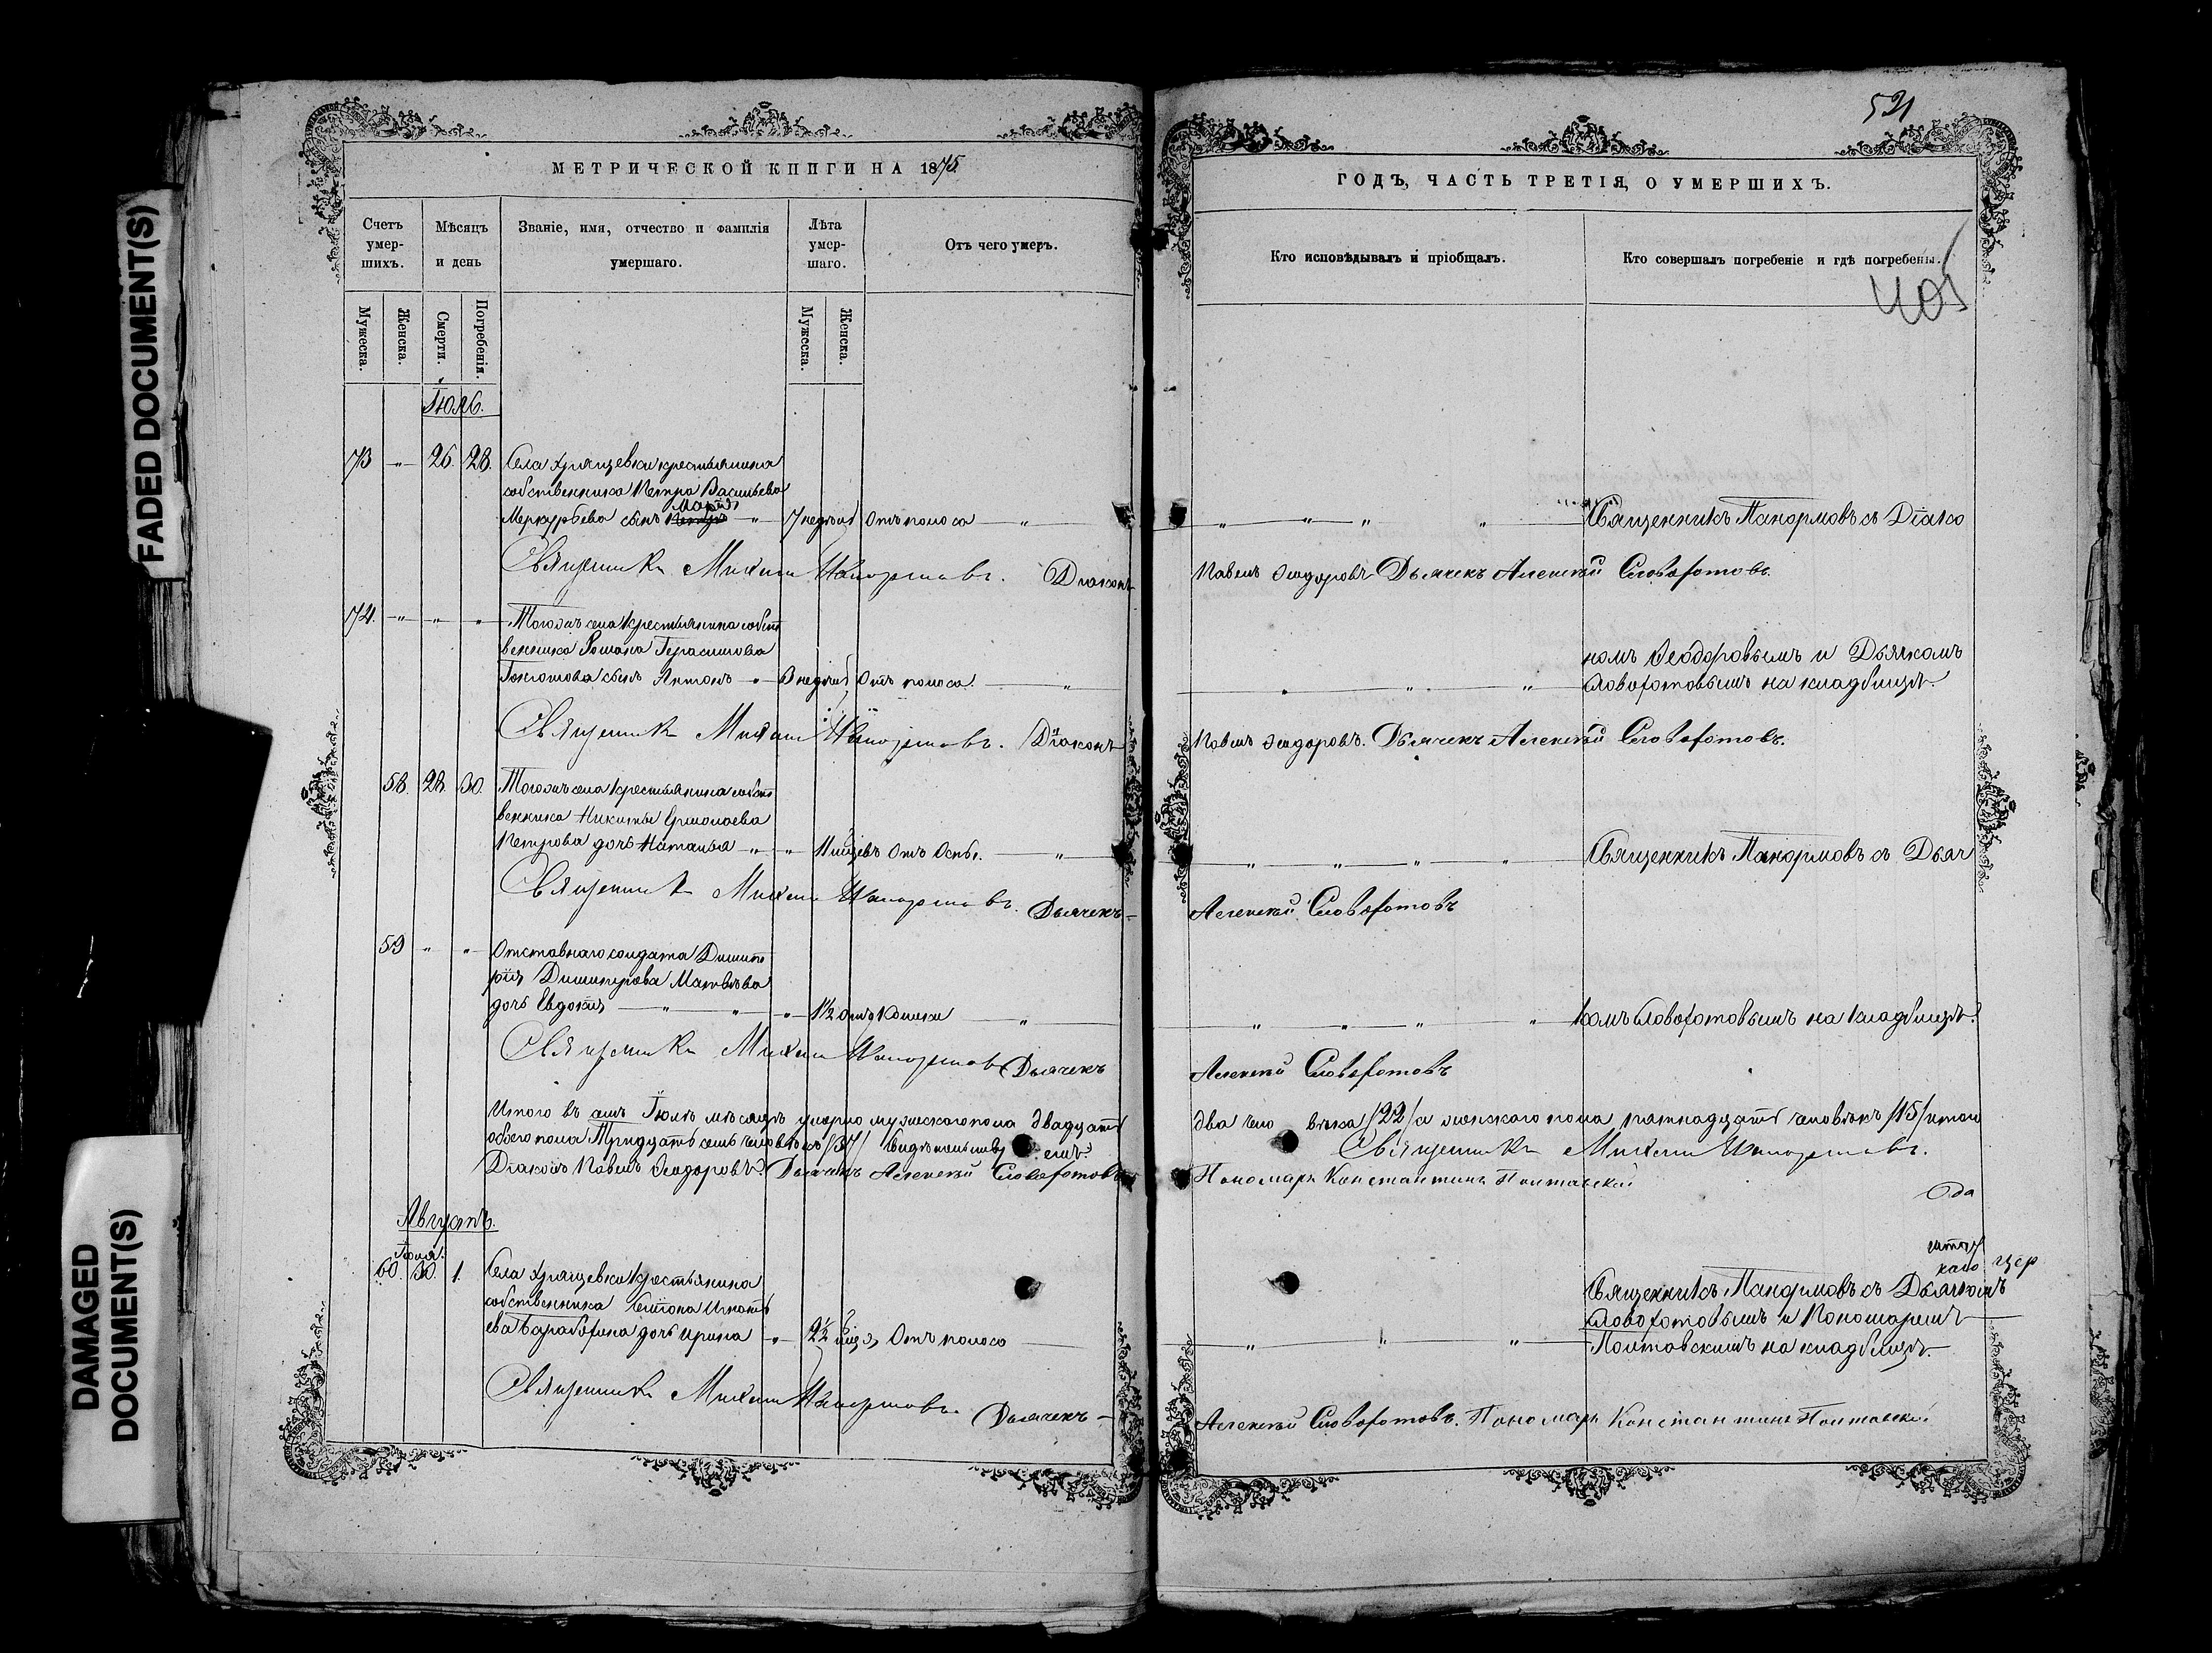 FADED DOCUMENT(S)
DAMAGED
DOCUMENT(S)
МЕТРИЧЕСКОЙ КНИГИ НА 1875
Счетъ
умер-
шихъ.
Мѣсяцъ
и день
Званіе, имя, отчество и фамилія
умершаго.
Лѣта
умер-
шаго.
Отъ чего умеръ.
Мужеска.
Женска.
Смерти.
Погребенія.
Мужеска.
Женска.
Іюль.
73 „ 26. 28. Села Хрящевки крестьянина
собственника Петра Васильева
Марій
Меркурьева сынъ Петръ „ 7 недѣль Отъ поноса „
Священникъ Михаилъ Панормовъ. Діаконъ
74. „ „ „ Тогожъ села крестьянина собст
венника Романа Герасимова
сынъ Антонъ „ 3 недѣли Отъ поноса. „
Священникъ Михаилъ Панормовъ. Діаконъ
58. 28. 30. Тогожъ села крестьянина собст
венника Никиты Ермолаева
Петрова дочь Наталья „ „ 11 мѣсяцевъ Отъ Оспы. „
Священникъ Михаилъ Панормовъ. Дьячекъ
59 „ „ Отставнаго солдата Димит
рія Димитріева Матвѣева
дочь Евдокія „ „ „ 1½ Отъ „
Священникъ Михаилъ Панормовъ Дьячекъ
Итого въ семъ Іюлѣ мѣсяцѣ умерло мужескаго пола двадцать
обоего пола Тридцать семь человѣкъ /37/
Діаконъ Павелъ Ѳеодоровъ. Дьячекъ Алексѣй Словохотовъ
Августъ.
Іюля
60. 30. 1. Села Хрящевки Крестьянина
собственника Семіона Игнать
ева дочь Ирина „ 2½ Отъ поноса
Священникъ Михаилъ Панормовъ. Дьячекъ
521
ГОДЪ, ЧАСТЬ ТРЕТІЯ, О УМЕРШИХЪ.
Кто исповѣдывалъ и пріобщалъ.
Кто совершалъ погребеніе и гдѣ погребены.
405
„ „ „ „ Священникъ Панормовъ съ Діако
Павелъ Ѳеодоровъ Дьячекъ Алексѣй Словохотовъ.
номъ Ѳеодоровымъ и Дьячкомъ
„ „ „ Словохотовымъ на кладбищѣ.
Павелъ Ѳеодоровъ. Дьячекъ Алексѣй Словохотовъ.
„ „ „ „ Священникъ Панормовъ съ Дьяч
Алексѣй Словохотовъ
„ „ „ „ комъ Словохотовымъ на кладбищѣ.
Алексѣй Словохотовъ
два чело вѣка /22/ а женскаго пола пятнадцать человѣкъ /15/ итого
Священникъ Михаилъ Панормовъ.
Пономарь Константинъ Полтавскій
Священникъ Панормовъ съ Дьячкомъ
Словохотовымъ и Пономаремъ
„ „ „ Полтавскимъ на кладбищѣ.
Алексѣй Словохотовъ. Пономарь Константинъ Полтавскій